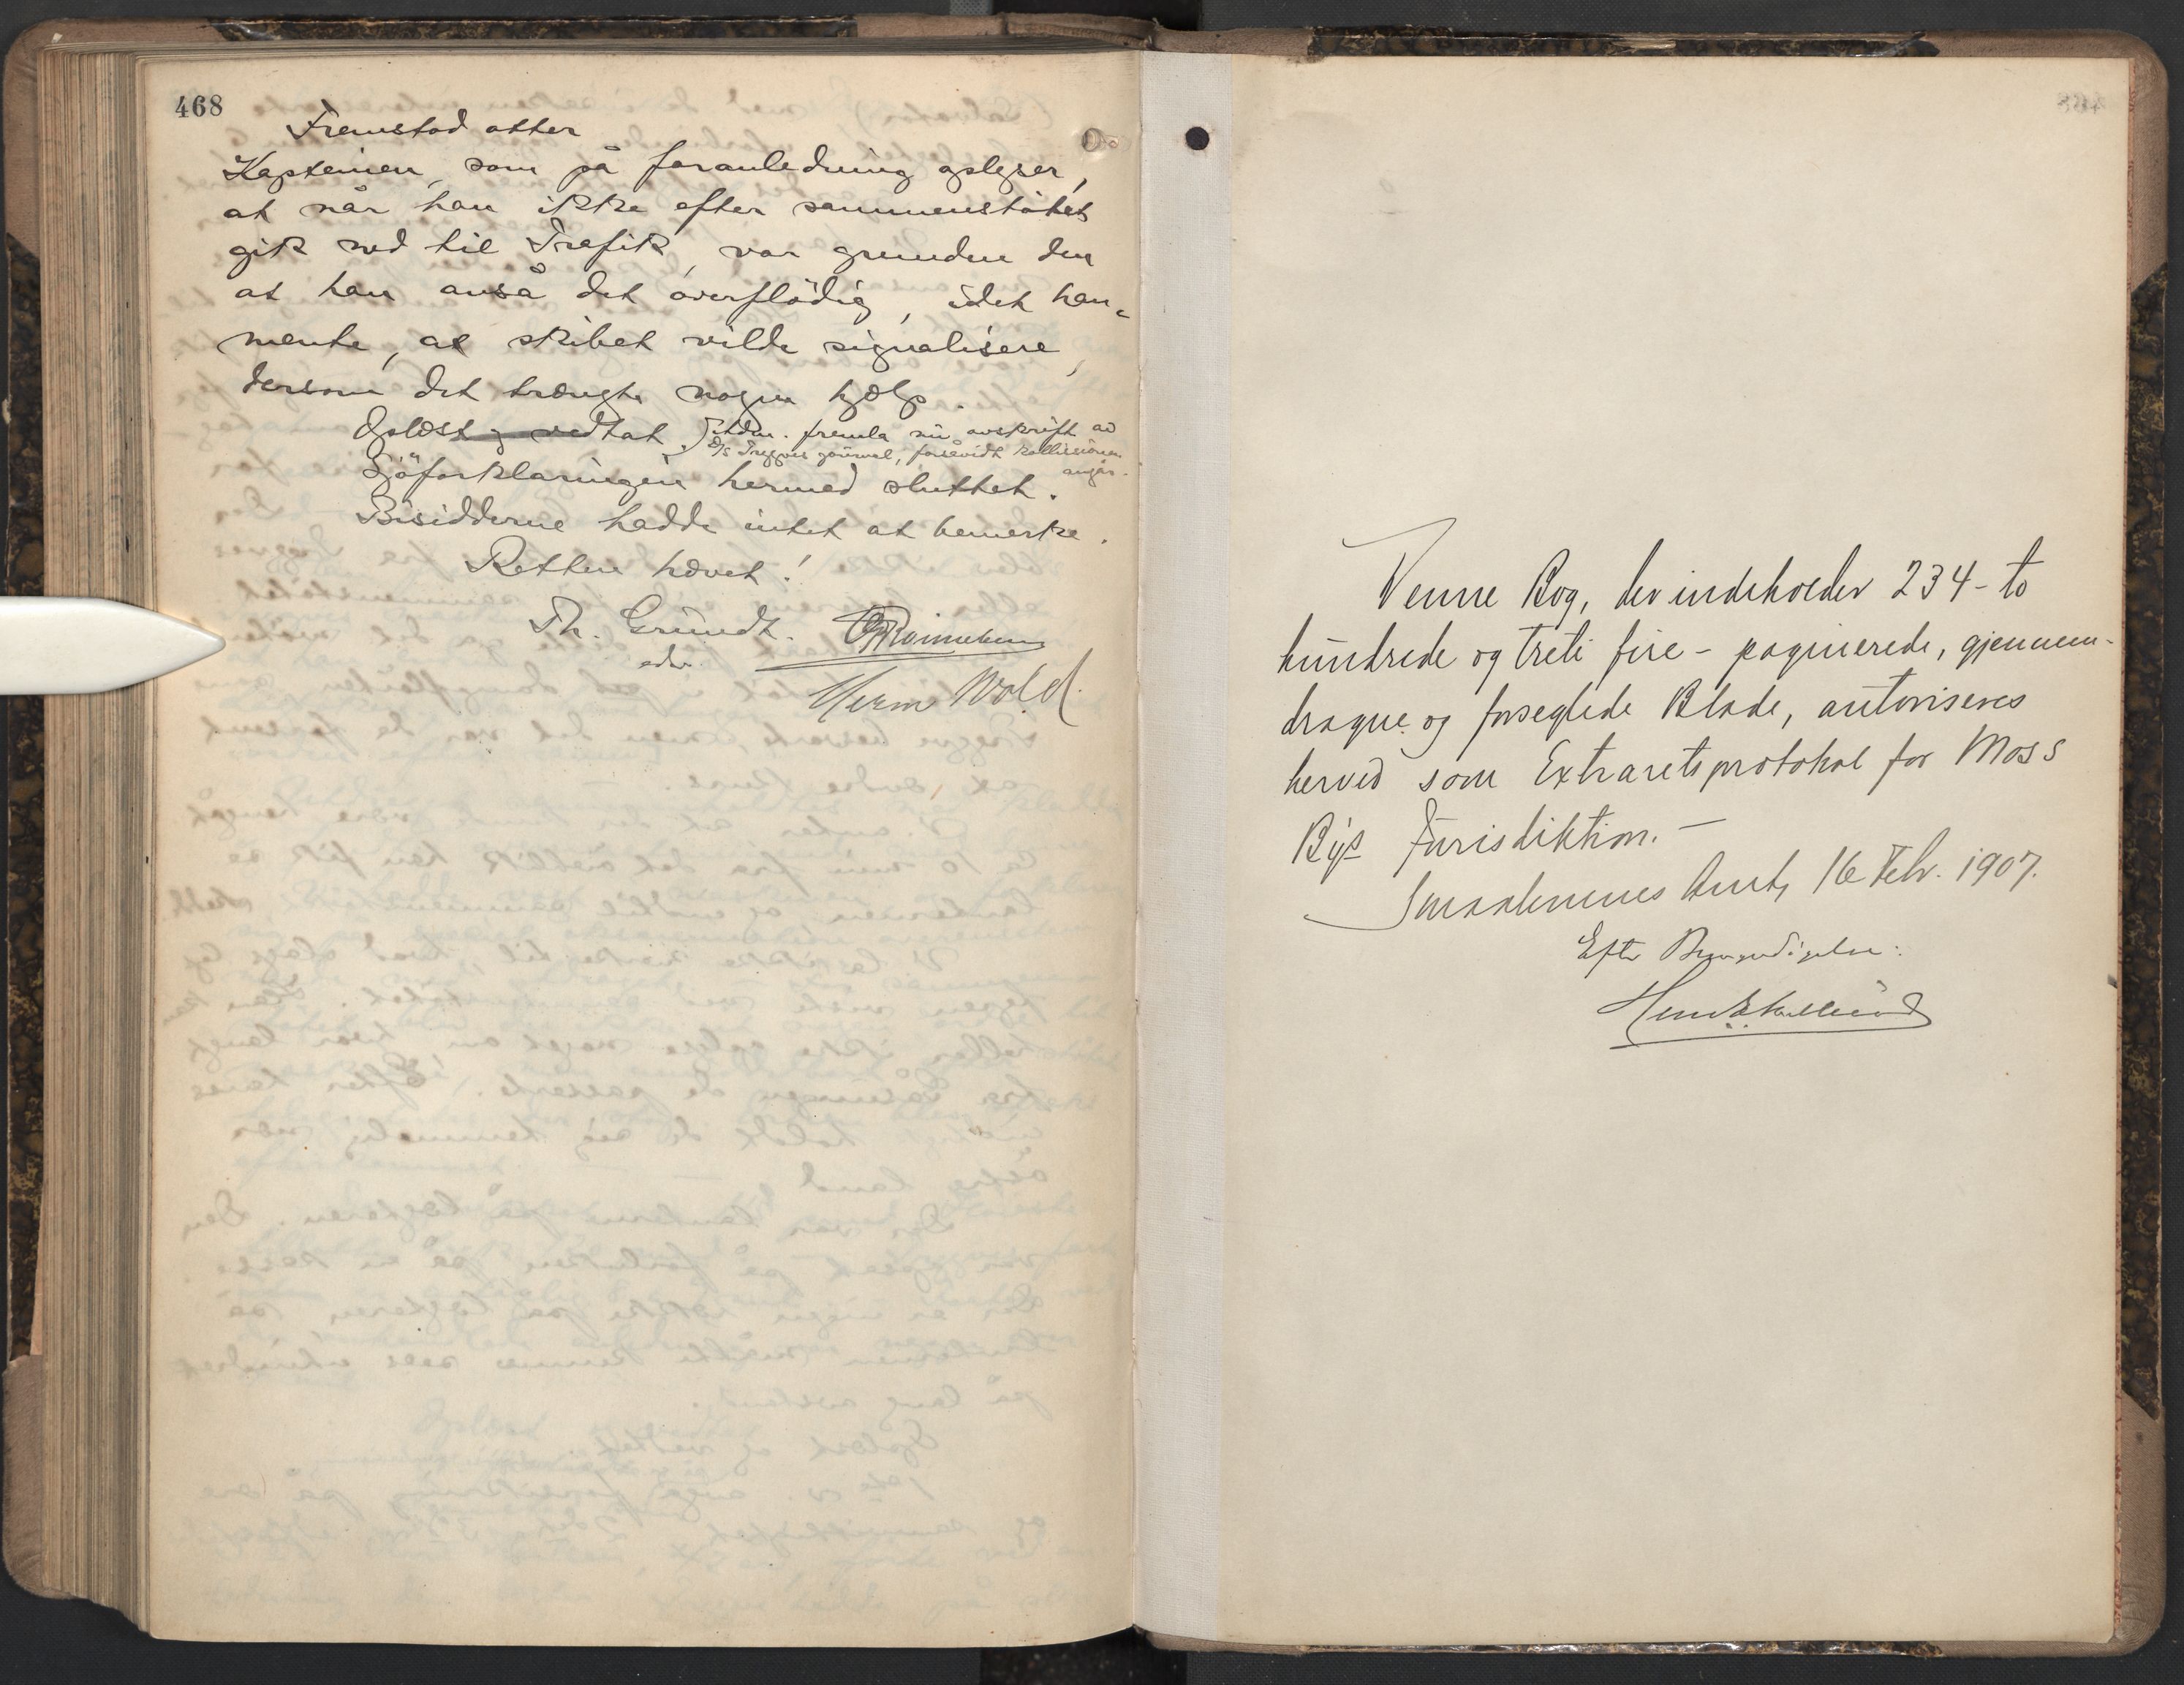 468
Fremstod atter
Kapteinen, som på foranledning oplyser,
at når han ikke efter sammenstøtet
gik ned til Trafik, var grunden den
at han anså det overflødig, idet han
mente, at skibet vilde signalisere,
dersom det trængte nogen hjælp.
Oplæst og vedtat. fremla nu avskrift av
D/S Trygves journal, forsåvidt kollisionen
angår.
Sjöforklaringen hermed sluttet.
Bisidderne hadde intet at bemerke.
Retten hævet!
Th. Gründt.
edsv.
Herm Wold.
Denne Bog, der indeholder 234 - to
hundrede og treti fire - paginerede, gjennem-
dragne og forseglede Blade, autoriseres
herved som Extraretsprotokol for Moss
Bys Jurisdiktion. -
Smaalenenes Amt, 16 Febr. 1907.
Efter Bemyndigelse: